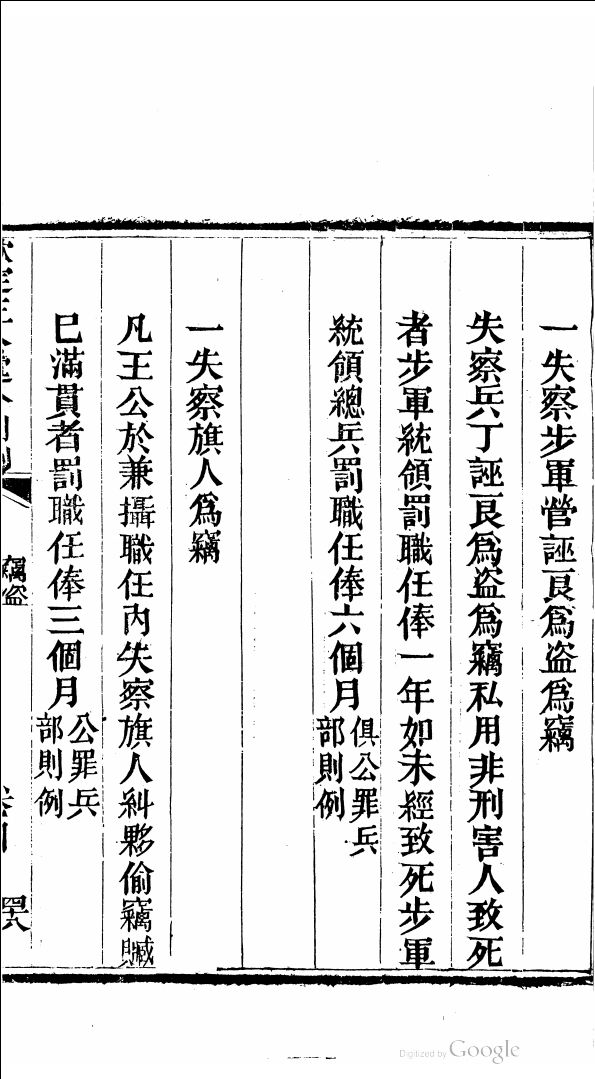 一失察步軍營誣良爲盜爲竊
失察兵丁誣良爲盜爲竊私用非刑害人致死
者步軍統領罰職任俸一年如未經致死步軍
統領總兵罰職任俸六個月俱公罪兵部則例
一失察旗人爲竊
凡王公於兼攝職任內失察旗人糾夥偷竊贓
巳滿貫者罰職任俸三個月公罪兵部則例
竊盜
Digitized by Google